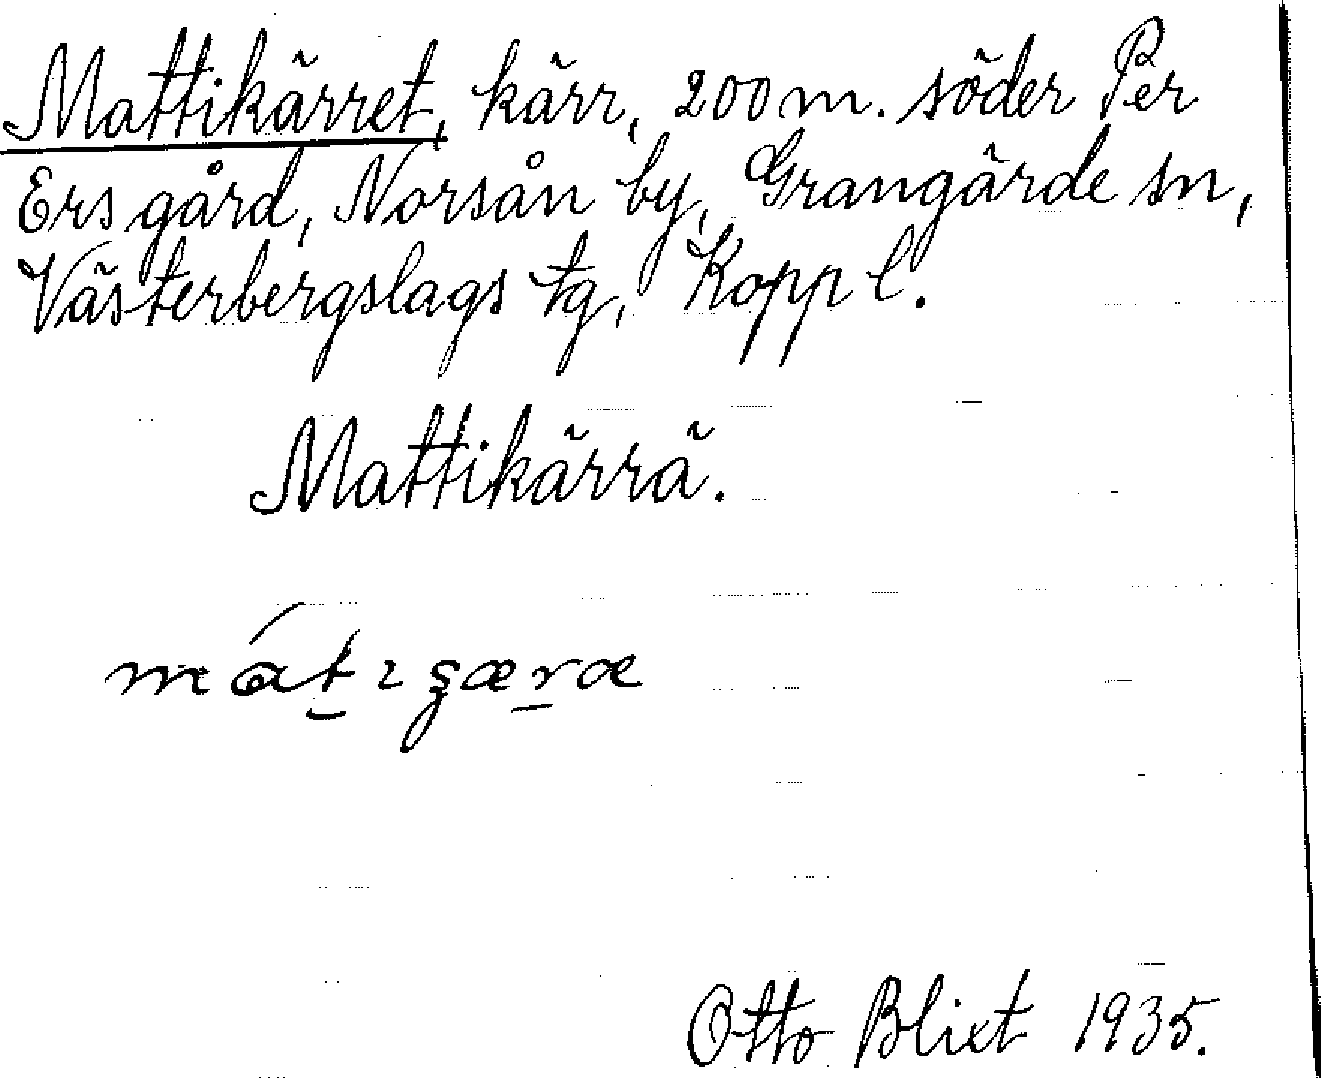 Mattikärret, kärr, 200 m. söder Per
Ers gård, Norsån by, Grangärde sn,
Västerbergslags tg, Kopp l.
Mattikärrä.
Otto Blixt 1935.